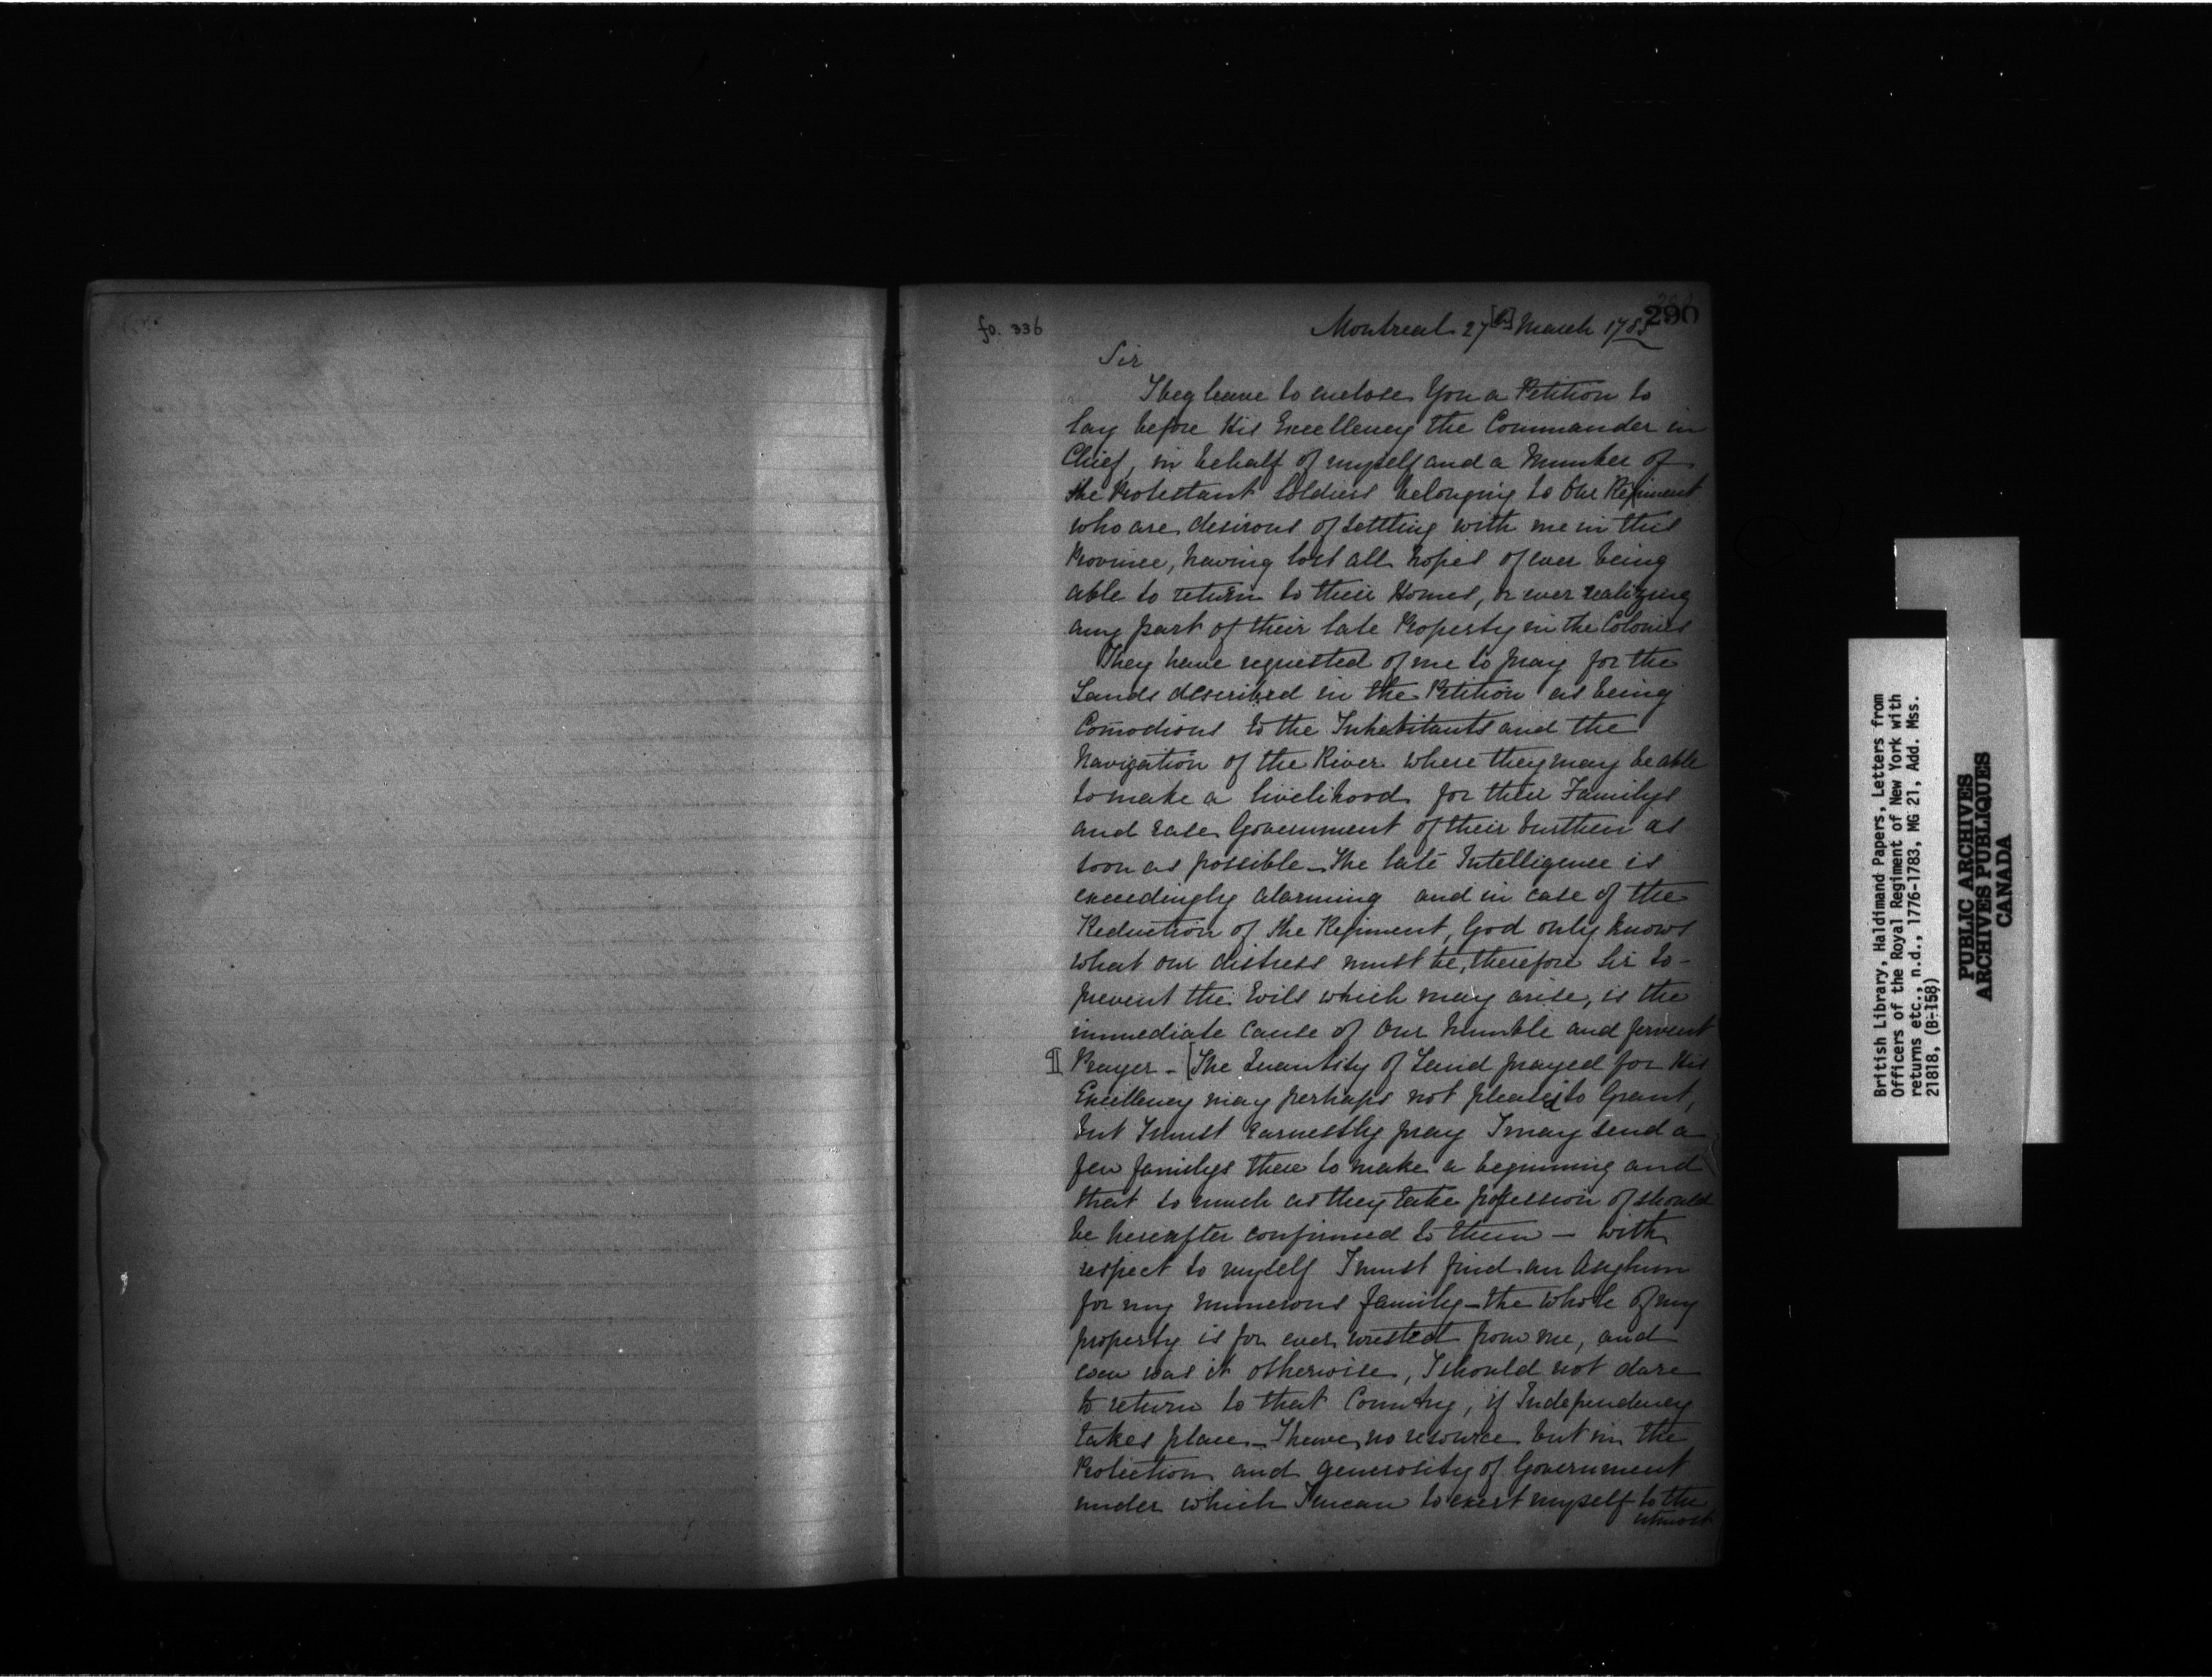 290
fo. 336
Montreal 27[th] March 1783
Sir
I beg leave to enclose You a Petition to
lay before His Excellency the Commander in
Chief, in behalf of myself and a Number of
the Protestant Soldiers belonging to Our Regiment
who are desirous of settling with me in this
Province, having lost all hopes of ever being
able to return to their Homes, or ever realizing
any part of their late Property in the Colonies
They have requested of me to pray for the
Lands described in the Petition as being
Comodious to the Inhabitants and the
Navigation of the River where they may be able
to make a livelihood for their Familys
and ease Government of their burthen as
soon as possible_ The late Intelligence is
exceedingly alarming and in case of the
Reduction of the Regiment, God only knows
what our distress must be, therefore Sir to -
prevent the Evils which may arise, is the
immediate cause of Our humble and fervent
¶ Prayer - [The Quantity of Land prayed for His
Excellency may perhaps not please to Grant,
but I must earnestly pray I may send a
few familys there to make a beginning and
that so much as they take possession of should
be hereafter confirmed to them — with
respect to myself I must find an Asylum
for my numerous family_ the whole of my
property is for ever wrested from me, and
even was it otherwise, I should not dare
to return to that Country, if Independency
takes place_ I have no resource but in the
Protection and generosity of Government
under which I mean to exert myself to the
utmost
British Library, Haldimand Papers, Letters from
Officers of the Royal Regiment of New York with
returns etc., n.d., 1776-1783, MG 21, Add. Mss.
21818, (B-158)
PUBLIC ARCHIVES
ARCHIVES PUBLIQUES
CANADA